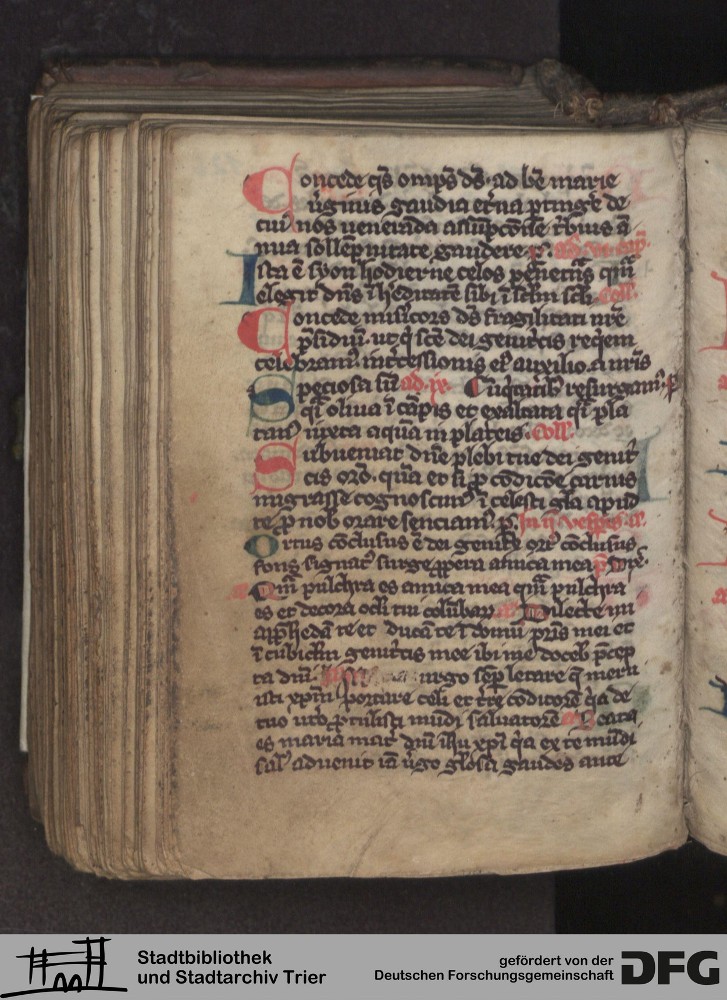 Concede q̄s omp̄s ds̄ · ad bē marie
ṽginis gaudia et̄na ꝑting̃e de
cui9 nos ueneranda assūpcōne
nua sollēpnitate gaudere · p̄
Ista ē syon hodierne celos penet̃ns
elegit dn̄s ī hēditatē sibi ī sclm̄ scli Coll.
Concede mis̃icors ds̄ fragilitati nr̄e
p̄sidiū · ut q̄ scē dei genit̃cis reqĩem
celebram9 int̃cessionis ei9 auxilio · a nr̄is
Speciosa ad · ix · resurgam9 · p̄
q̄i oliua ī cāpis et exaltata q̄i pla
tan9 iuxta aquā in plateis · Coll.
Subueniat dn̄e plebi tue dei genit̃
cis orō · quā et si ꝓ cōdicōe carnis
migrasse cognoscim9 ī celesti gl̄a apud
te ꝓ nob orare senciam9 · p̄ · In ij vesp̄is
Ortus cōclusus ē dei genit̃x ort9 cōclusus
fons signat9 surge ꝓpera amica mea
Qm̄ pulchra es amica mea qm̄ pulchra
es et decora ocl̄i tui colūbar Dilecte mi
appͪēdā te et ducā te ī domū pr̄is mei et
ī cubiclm̄ genit̃cis mee ibi me doceb p̄cep
ta dn̄i · irgo sēp letare q̄ meru
isti xp̄m portare celi et t̃re cōditorē q̃a de
tuo ut̃o ꝓtulisti mūdi saluatorē cara
es maria mat̃ dn̄i ih̄u xp̄i q̃a ex te mūdi
sal9 aduenit iā ṽgo gl̄osa gaudes ante
Stadtbibliothek
und Stadtarchiv Trier
gefördert von der
Deutschen Forschungsgemeinschaft
DFG